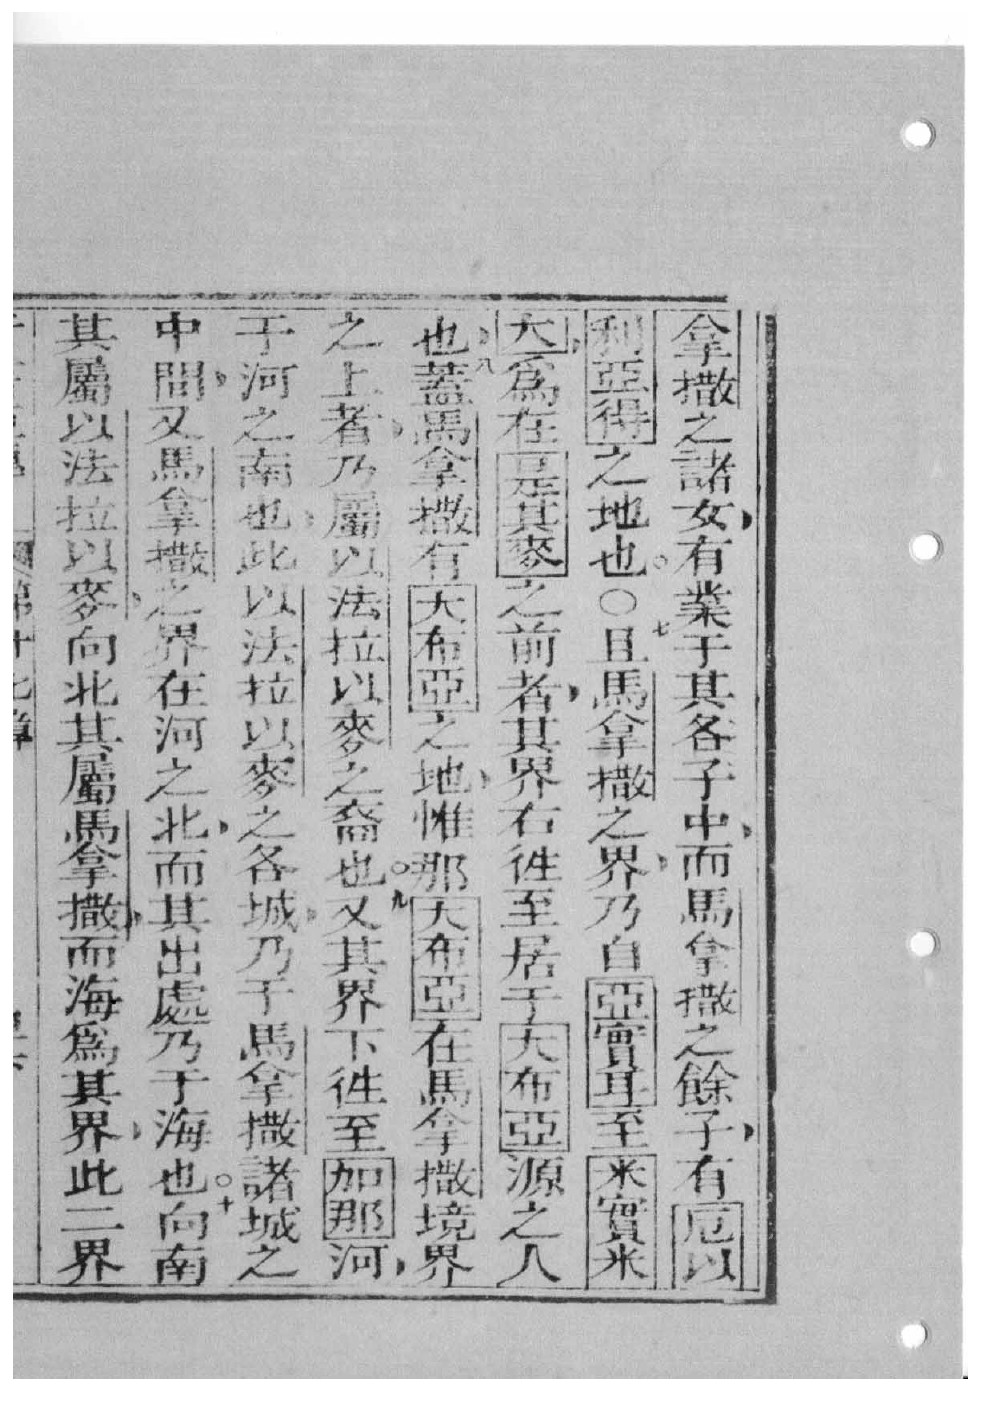 拿撒之諸女有業于其各子中而馬拿撒之餘子有厄以
利亞得之地也。○七且馬拿撒之界乃自亞實耳至米實米
大為在是其麥之前者其界右徃至居于大布亞源之人
也八蓋馬拿撒有大布亞之地惟那大布亞在馬拿撒境界
之上者乃屬以法拉以麥之裔也。九又其界下徃至加那河
于河之南也此以法拉以麥之各城乃于馬拿撒諸城之
中間又馬拿撒之界在河之北而其出處乃于海也。十向南
其屬以法拉以麥向北其屬馬拿撒而海為其界此二界
第十七章